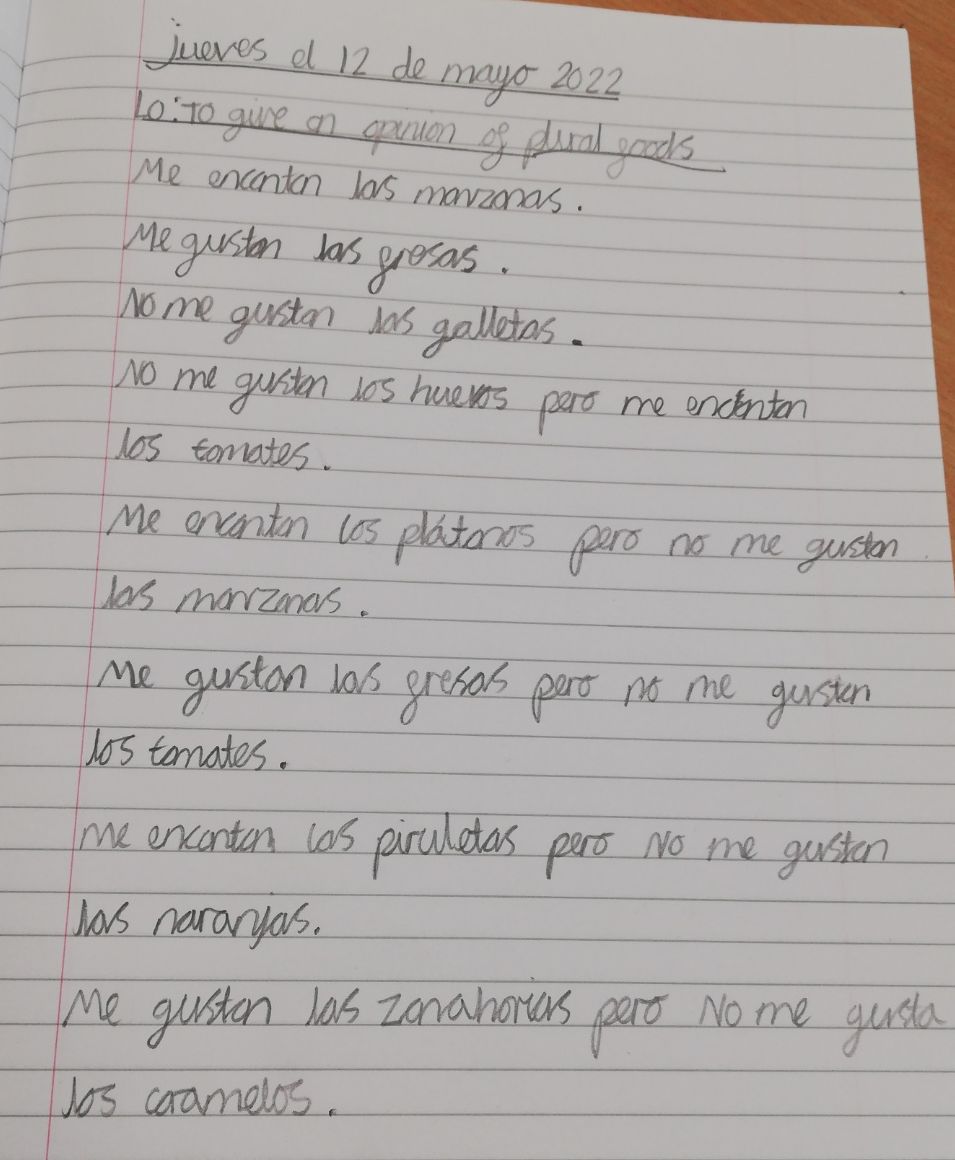 jueves el 12 de mayo 2022
LO: To give an opinion of plural goods
Me encantan las manzanas.
Me gustan las fresas.
No me gustan las galletas.
No me gustan los huevos pero me encantan
los tomates.
Me encantan los plátanos pero no me gustan
las manzanas.
Me gustan las fresas pero no me gustan
los tomates.
Me encantan las piruletas pero No me gustan
las naranjas.
Me gustan las zanahorias pero No me gusta
los caramelos.